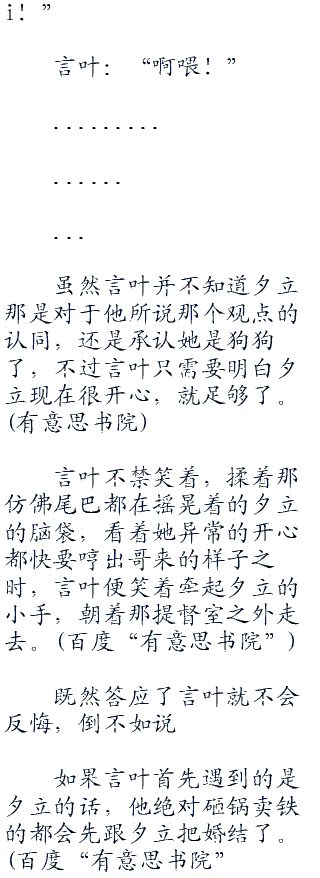 i！”
言叶：“啊喂！”
.........
......
...
虽然言叶并不知道夕立
那是对于他所说那个观点的
认同，还是承认她是狗狗
了，不过言叶只需要明白夕
立现在很开心，就足够了。
(有意思书院)
言叶不禁笑着，揉着那
仿佛尾巴都在摇晃着的夕立
的脑袋，看着她异常的开心
都快要哼出哥来的样子之
时，言叶便笑着牵起夕立的
小手，朝着那提督室之外走
去。(百度“有意思书院”)
既然答应了言叶就不会
反悔，倒不如说
如果言叶首先遇到的是
夕立的话，他绝对砸锅卖铁
的都会先跟夕立把婚结了。
(百度“有意思书院”